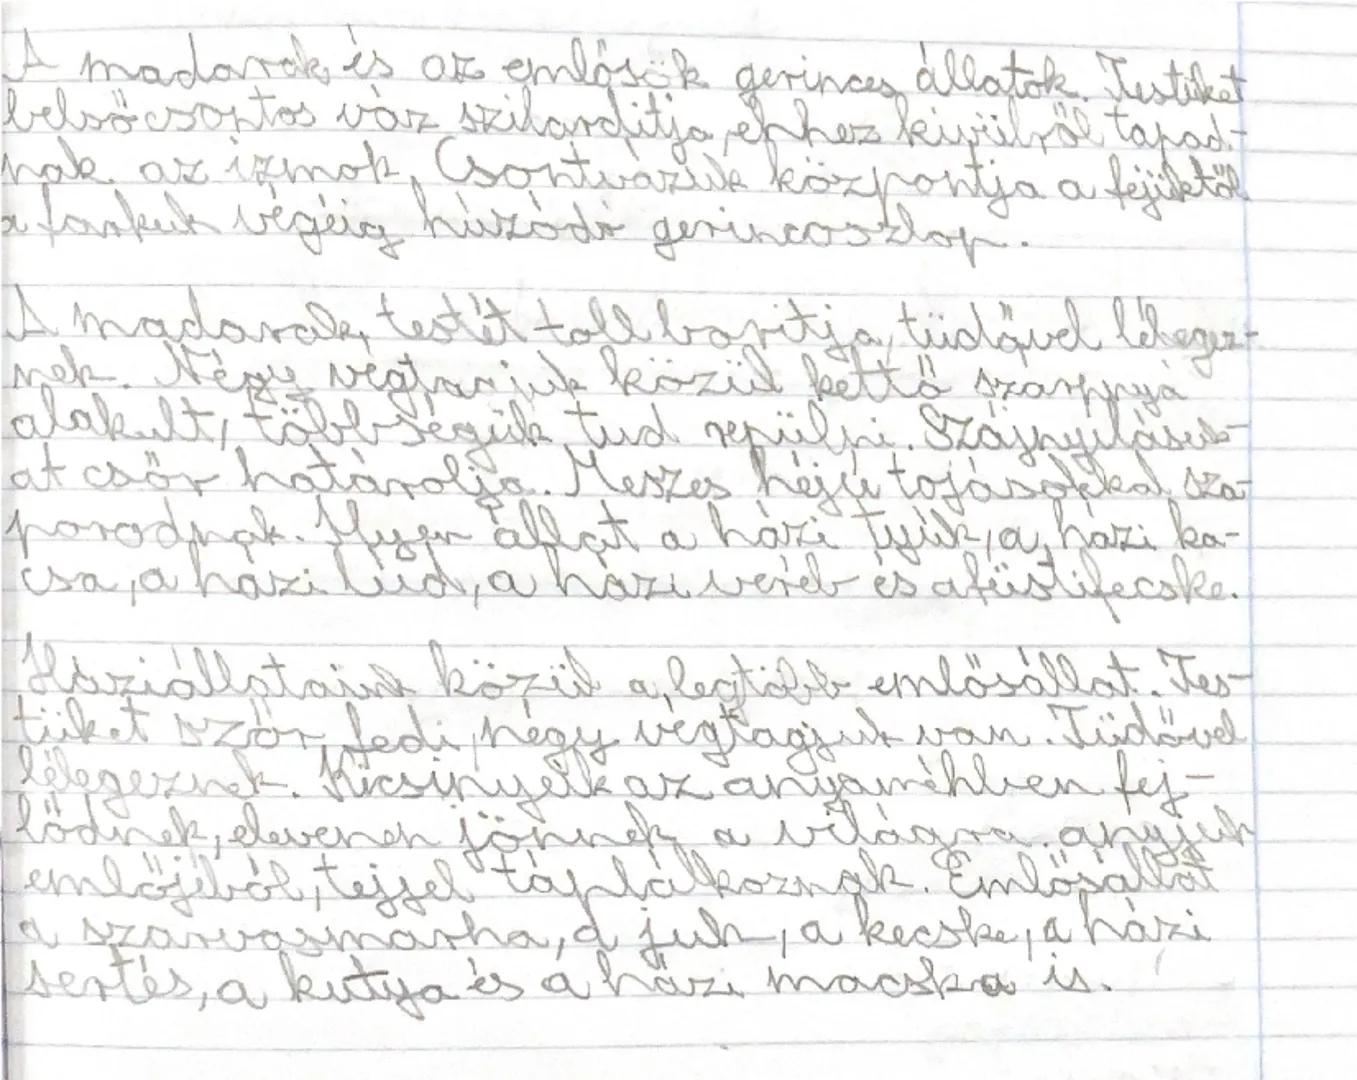 A madarak és az emlősök gerinces állatok. Testüket
belső csontos váz szilárdítja, ehhez kívülről tapad-
nak az izmok. Csontvázuk központja a fejüktől
a farkuk végéig húzódó gerincoszlop.
A madarak testét toll borítja, tüdővel lélegez-
nek. Négy végtagjuk közül kettő szárnnyá
alakult, többségük tud repülni. Szájnyílásuk-
at csőr határolja. Meszes héjú tojásokkal sza-
porodnak. Ilyen állat a házi tyúk, a házi ka-
csa, a házi lúd, a házi veréb és a füstifecske.
Háziállataink közül a legtöbb emlősállat. Tes-
tüket szőr fedi, négy végtagjuk van. Tüdővel
lélegeznek. Kicsinyeik az anyaméhben fej-
lődnek, elevenen jönnek a világra. anyjuk
emlőjéből, tejjel táplálkoznak. Emlősállat
a szarvasmarha, a juh, a kecske, a házi
sertés, a kutya és a házi macska is.